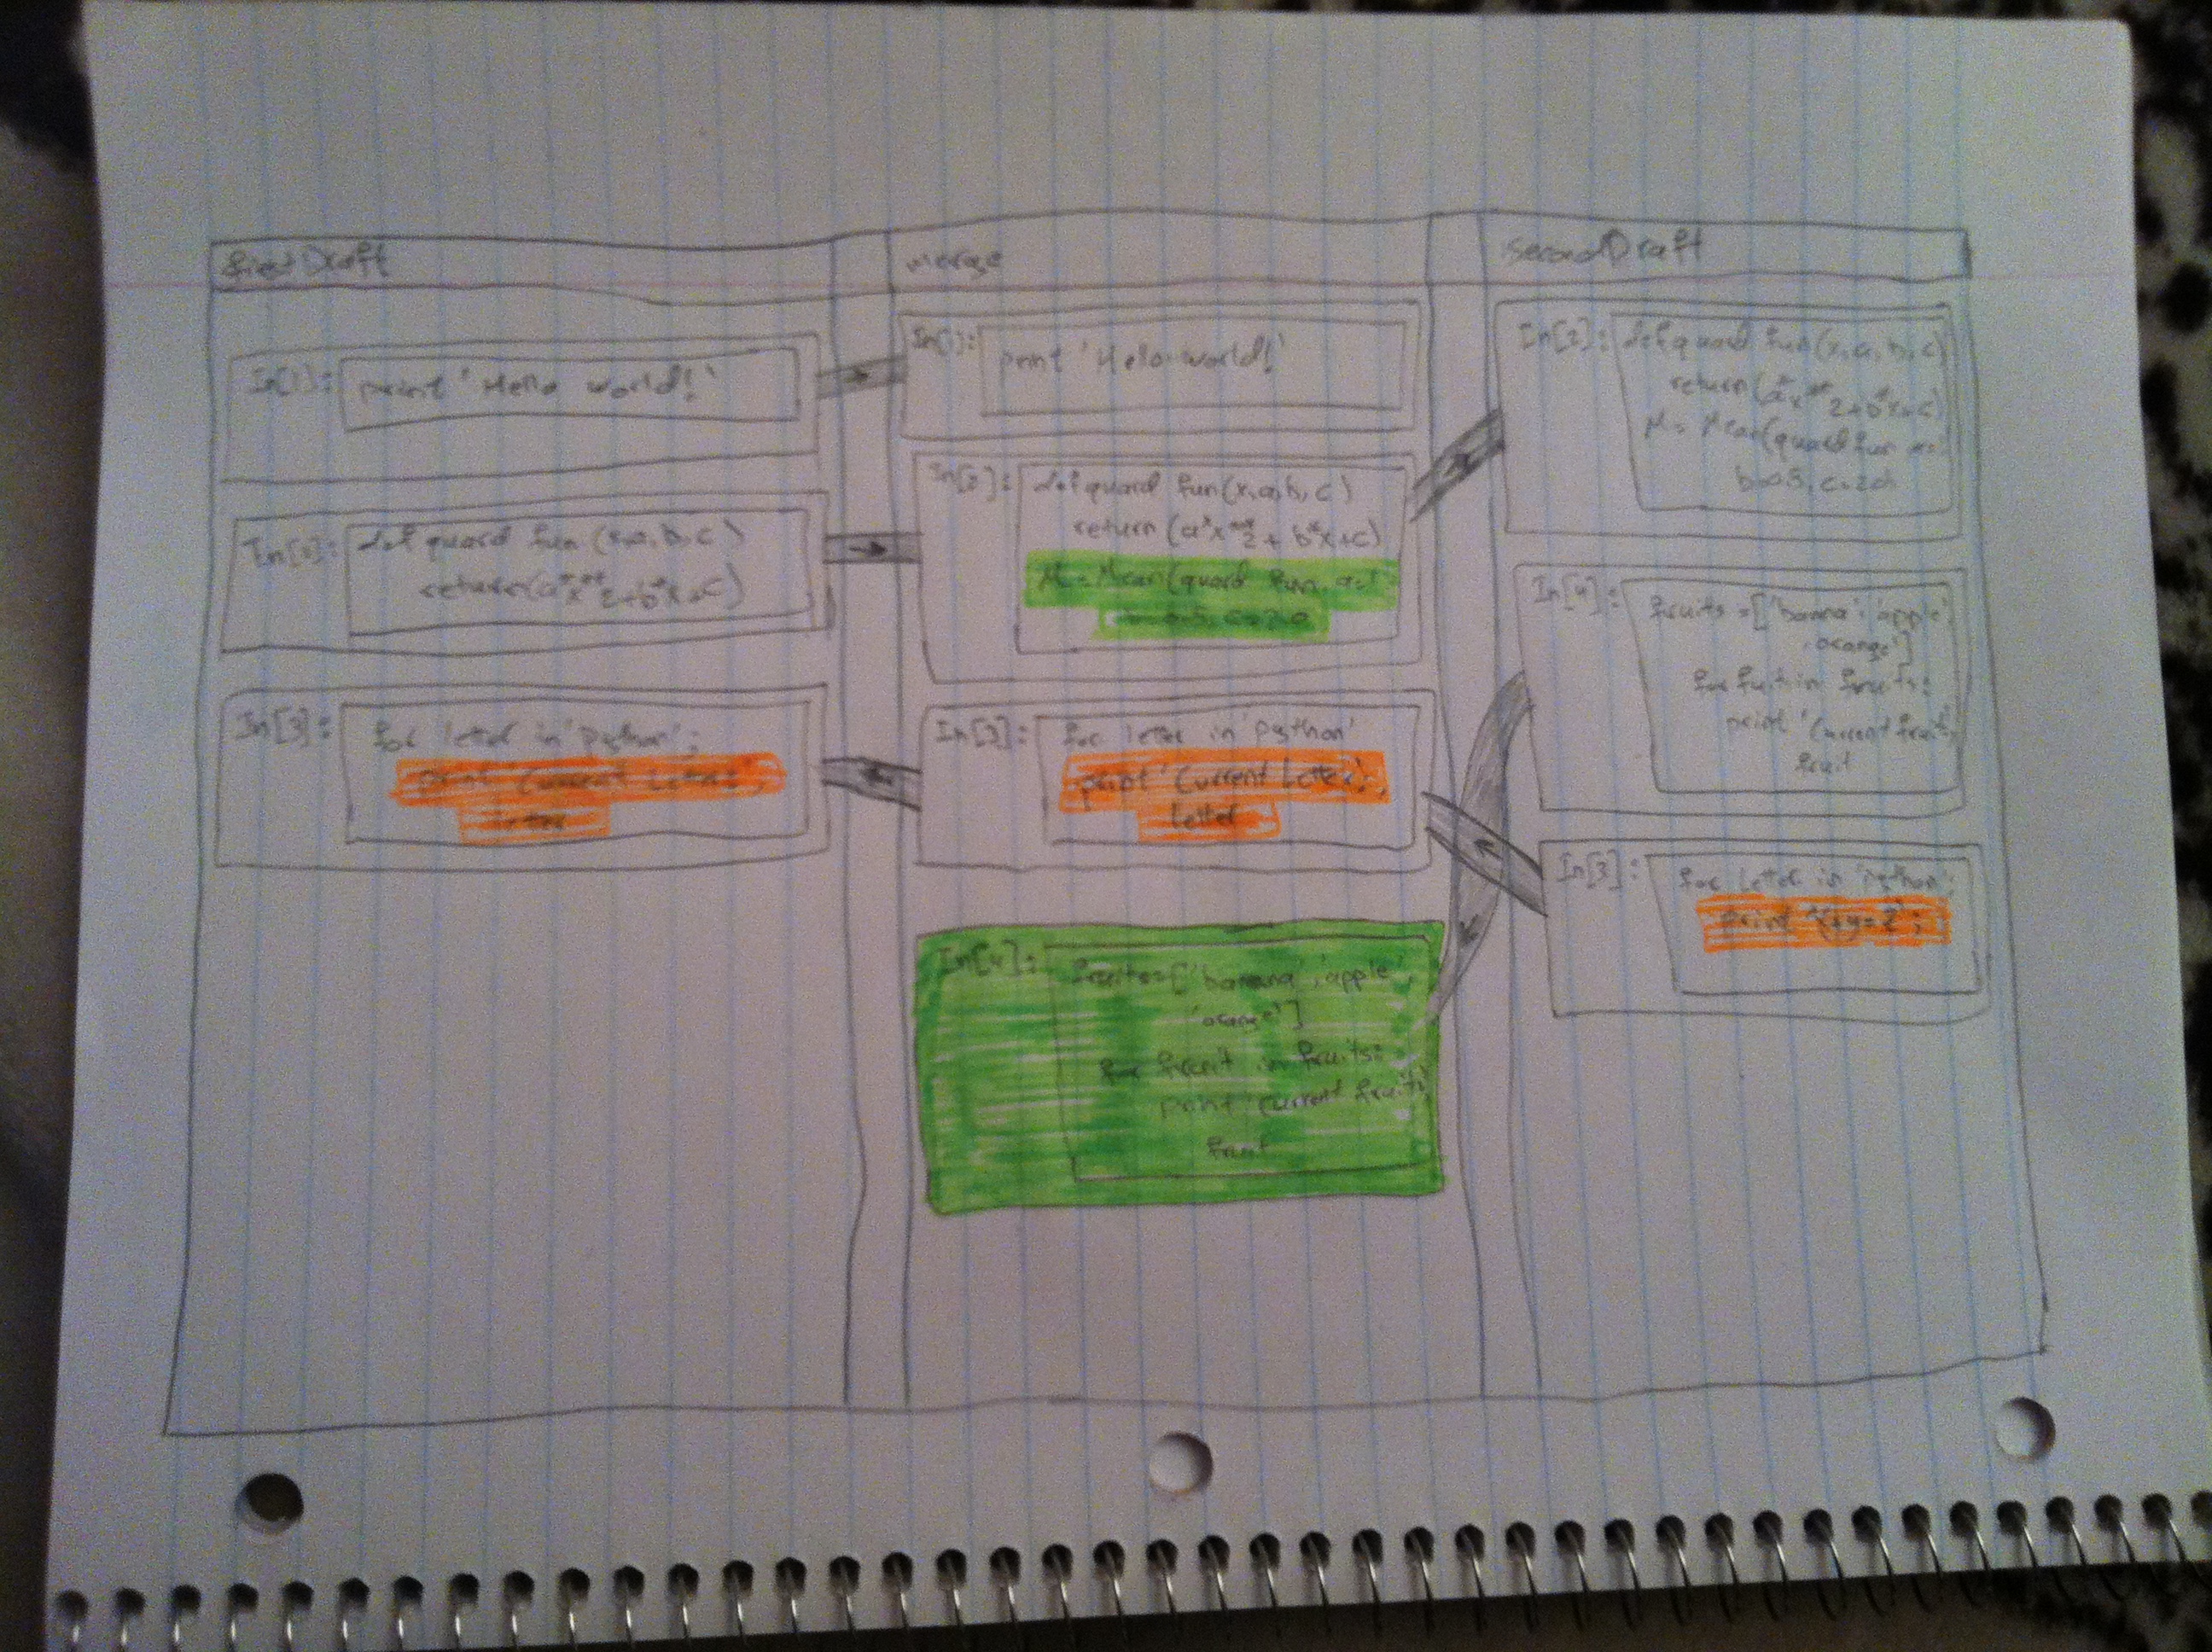 First Draft
In[1]: print 'Hello world!'
In[2]: def quard fun (x,a,b,c)
return(a*x**2+b*x+c)
In[3]: for letter in 'Python':
print 'Current Letter',
letter
merge
In[1]: print 'Hello world!'
In[2]: def quard fun(x,a,b,c)
return (a*x**2 + b*x+c)
Mean(quard fun,
In[3]: for letter in 'python'
print 'Current Letter',
letter
In[4]: fruits=['banana','apple',
'orange']
for fruit in fruits:
print 'current fruit',
fruit
Second Draft
In[2]: def quard fun(x,a,b,c)
return(a*x**2+b*x+c)
M = Mean(quard fun
In[4]: fruits =['banana','apple',
'orange']
for fruit in fruits:
print 'Current fruit',
fruit
In[3]: for letter in 'python',
print 'x+y=z',